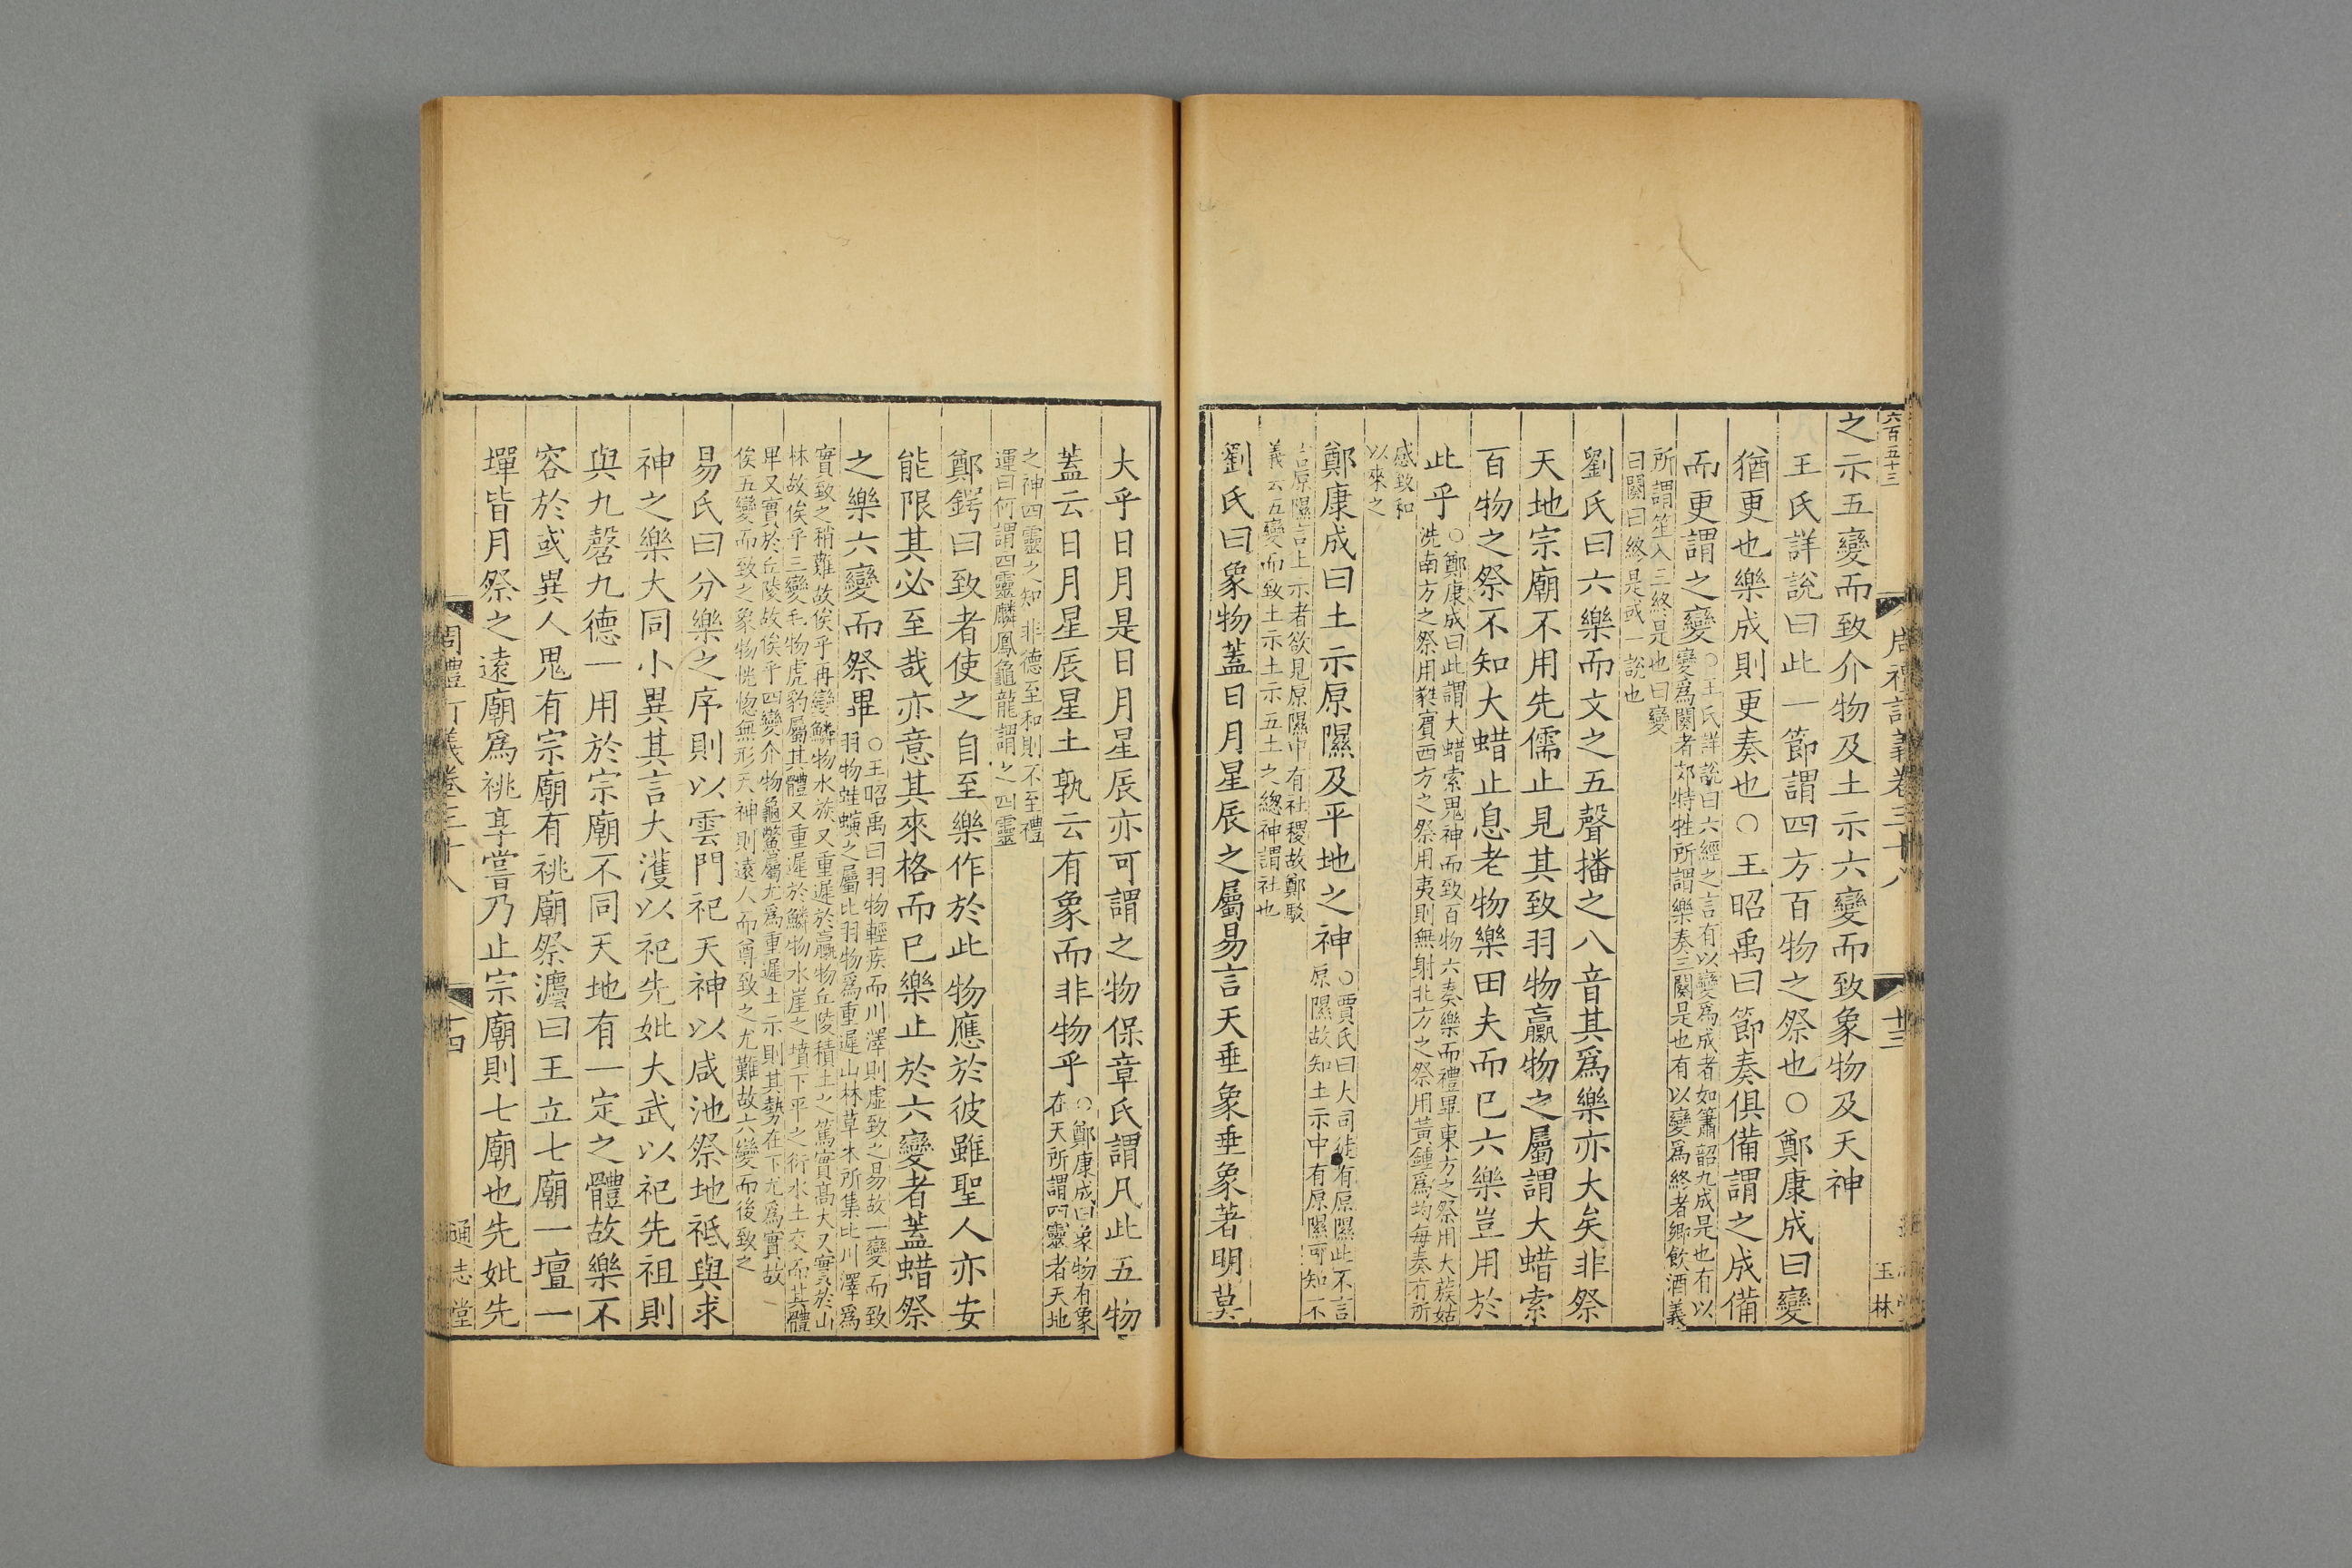 六百五十三
周禮訂義卷三十八
十三
玉林
之示五變而致介物及土示六變而致象物及天神
王氏詳說曰此一節謂四方百物之祭也○鄭康成曰變
猶更也樂成則更奏也○王昭禹曰節奏俱備謂之成備
而更謂之變
○王氏詳說曰六經之言有以變爲成者如簫韶九成是也有以
變爲闋者郊特牲所謂樂奏三闋是也有以變爲終者鄉飲酒義
所謂笙入三終是也曰變
曰闋曰終是或一說也
劉氏曰六樂而文之五聲播之八音其爲樂亦大矣非祭
天地宗廟不用先儒止見其致羽物臝物之屬謂大蜡索
百物之祭不知大蜡止息老物樂田夫而已六樂豈用於
此乎
○鄭康成曰此謂大蜡索鬼神而致百物六奏樂而禮畢東方之祭用大蔟姑
洗南方之祭用蕤賓西方之祭用夷則無射北方之祭用黃鍾爲均每奏有所
感致和
以來之
鄭康成曰土示原隰及平地之神
○賈氏曰大司徒有原隰此不言
原隰故知土示中有原隰可知不
言原隰言土示者欲見原隰中有社稷故鄭駁
義云五變而致土示土示五土之緫神謂社也
劉氏曰象物蓋日月星辰之屬易言天垂象垂象著明莫
大乎日月是日月星辰亦可謂之物保章氏謂凡此五物
蓋云日月星辰星土孰云有象而非物乎
○鄭康成曰象物有象
在天所謂四靈者天地
之神四靈之知非德至和則不至禮
運曰何謂四靈麟鳳龜龍謂之四靈
鄭鍔曰致者使之自至樂作於此物應於彼雖聖人亦安
能限其必至哉亦意其來格而已樂止於六變者蓋蜡祭
之樂六變而祭畢
○王昭禹曰羽物輕疾而川澤則虛致之易故一變而致
羽物蛙蠙之屬比羽物爲重遲山林草木所集比川澤爲
實致之稍難故俟乎再變鱗物水族又重遲於臝物丘陵積土之篤實高大又實於山
林故俟乎三變毛物虎豹屬其體又重遲於鱗物水崖之墳下平之衍水土交而其體
卑又實於丘陵故俟乎四變介物龜鱉屬尤爲重遲土示則其勢在下尤爲實故
俟五變而致之象物恍惚無形天神則遠人而尊致之尤難故六變而後致之
易氏曰分樂之序則以雲門祀天神以咸池祭地祗與求
神之樂大同小異其言大濩以祀先妣大武以祀先祖則
與九磬九德一用於宗廟不同天地有一定之體故樂不
容於或異人鬼有宗廟有祧廟祭灋曰王立七廟一壇一
墠皆月祭之遠廟爲祧享嘗乃止宗廟則七廟也先妣先
周禮訂義卷三十八
十四
通志堂